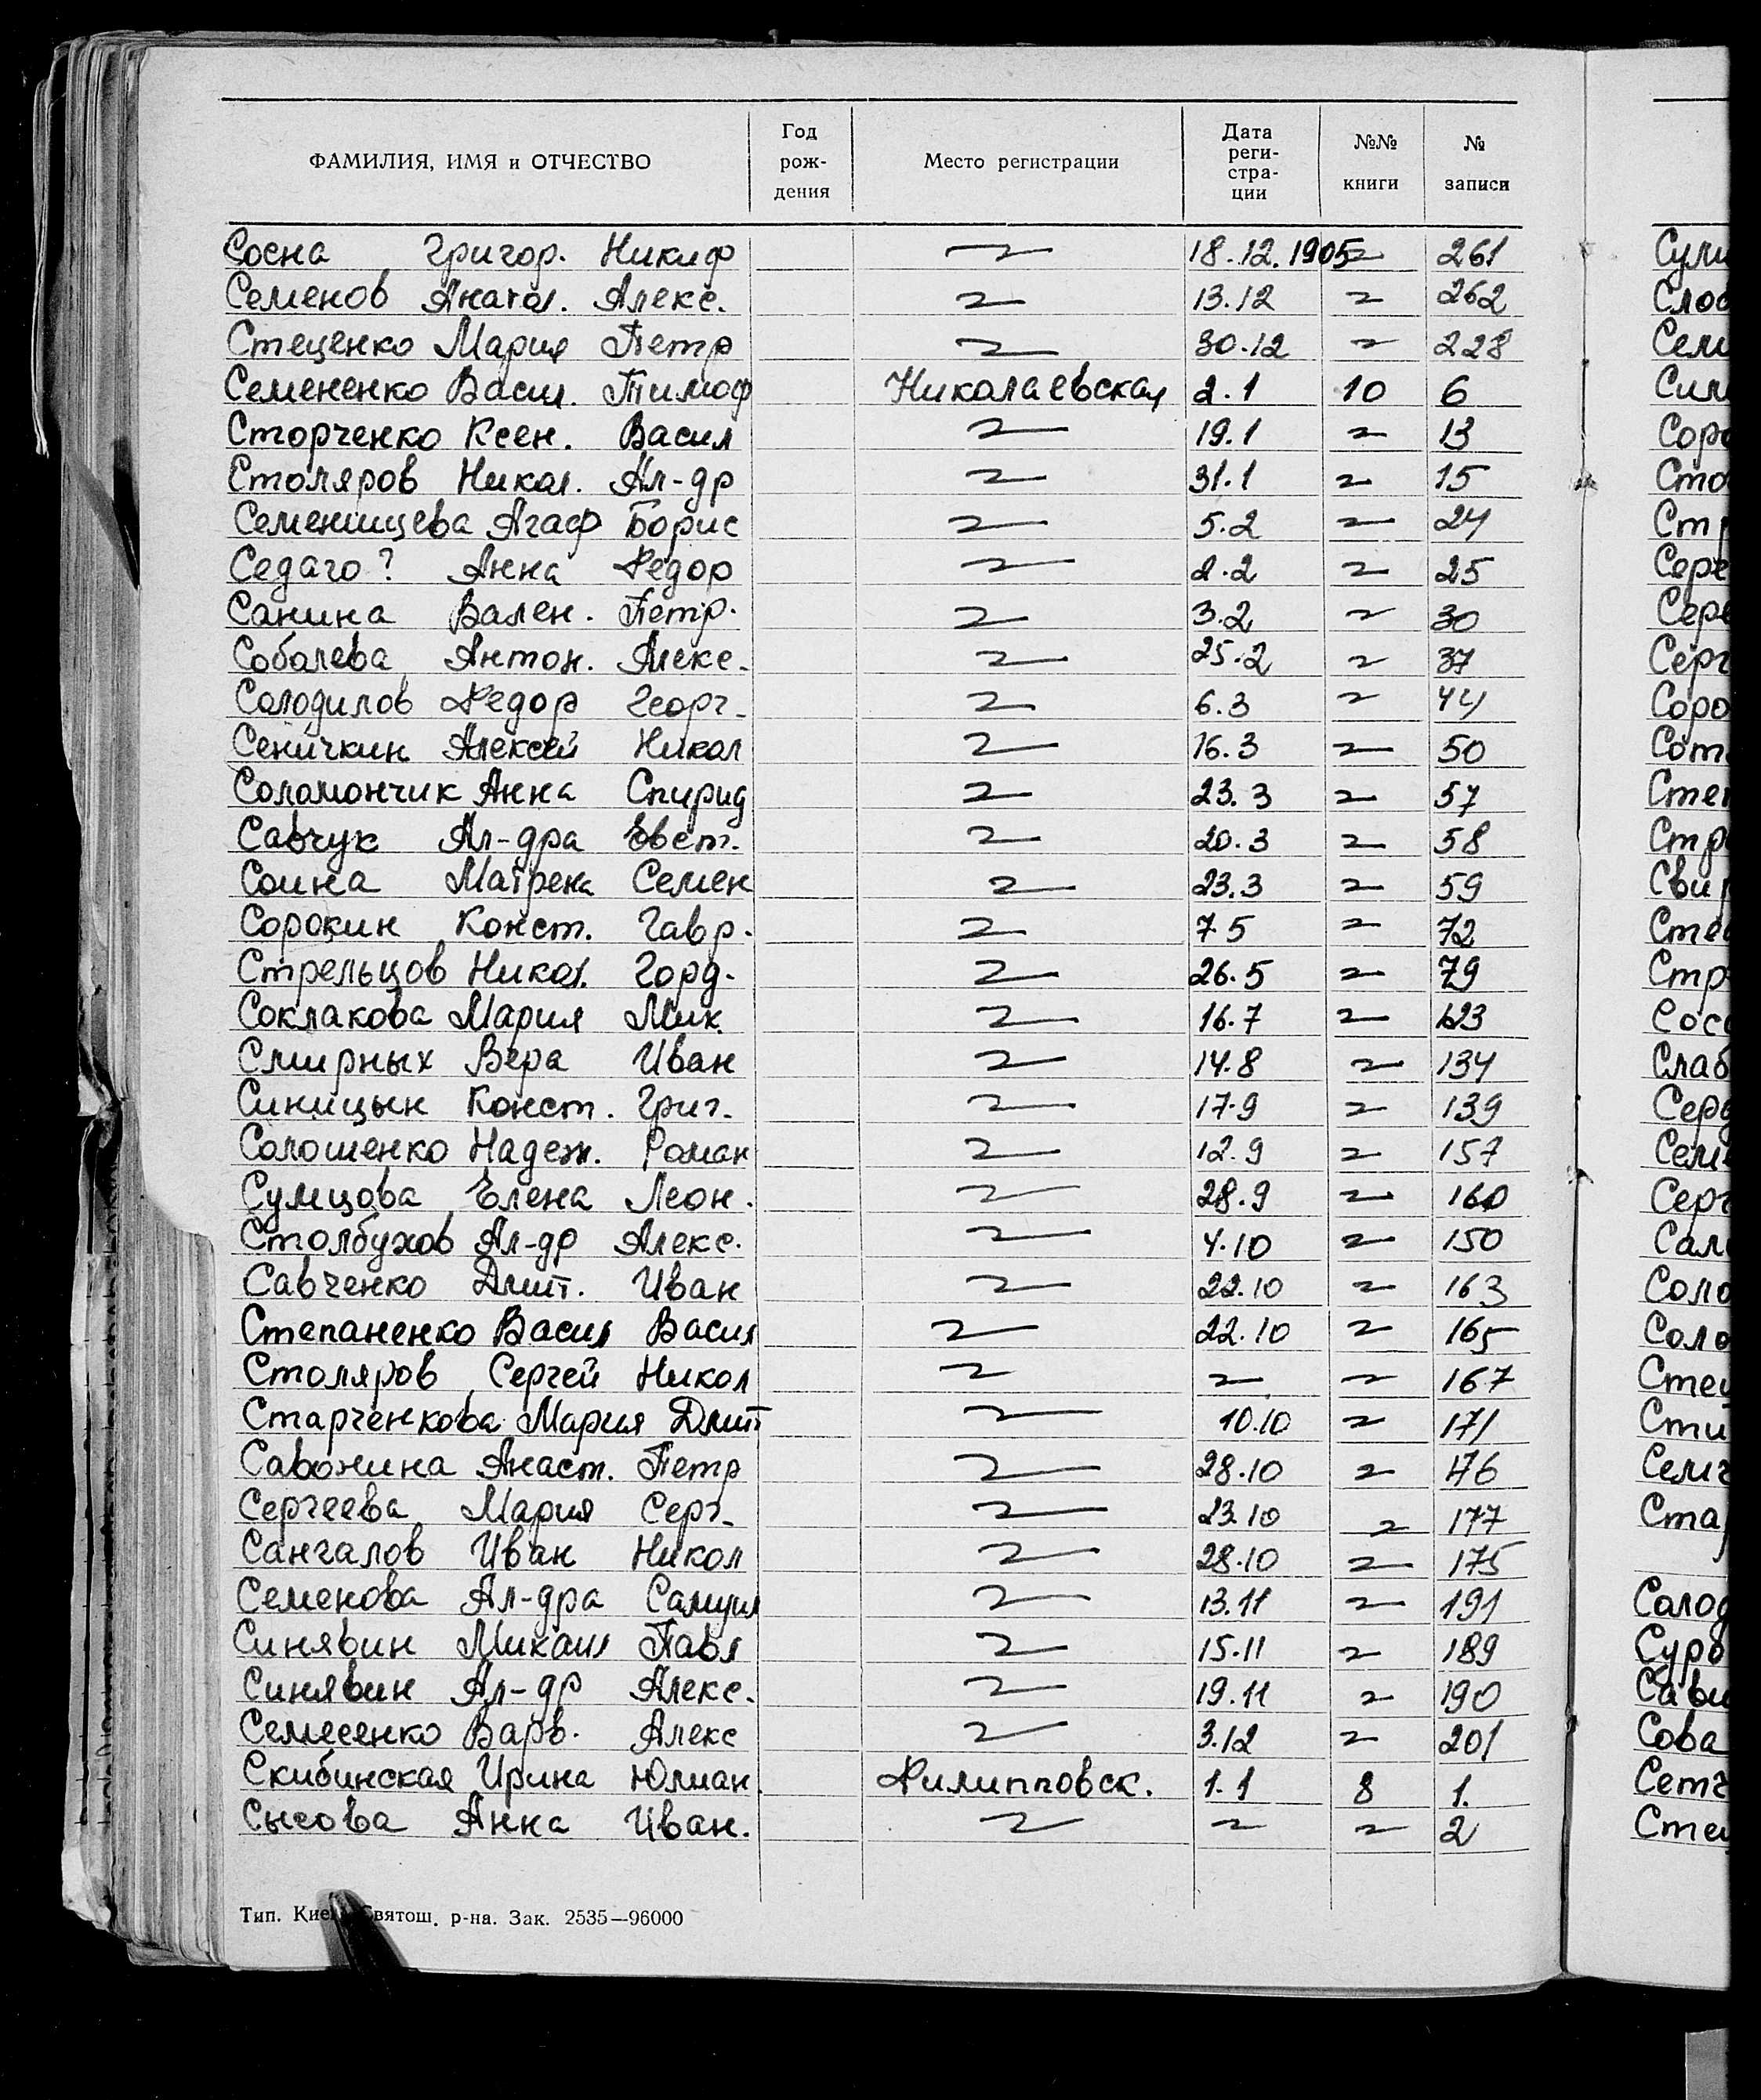 ФАМИЛИЯ, ИМЯ и ОТЧЕСТВО Год рож- дения Место регистрации Дата реги- стра- ции №№ книги № записи
Сосна Григор. Никиф 〃 18.12.1905 〃 261
Семенов Анатол. Алекс. 〃 13.12 〃 262
Стеценко Мария Петр 〃 30.12 〃 228
Семененко Васил. Тимоф Николаевская 2.1 10 6
Сторченко Ксен. Васил 〃 19.1 〃 13
Столяров Никол. Ал-др 〃 31.1 〃 15
Семенищева Агаф Борис 〃 5.2 〃 24
Седаго? Анна Федор 〃 2.2 〃 25
Санина Вален. Петр. 〃 3.2 〃 30
Собалева Антон. Алекс. 〃 25.2 〃 37
Солодилов Федор Георг. 〃 6.3 〃 44
Сеничкин Алексей Никол 〃 16.3 〃 50
Соломончик Анна Спирид 〃 23.3 〃 57
Савчук Ал-дра Евст. 〃 20.3 〃 58
Соина Матрена Семен 〃 23.3 〃 59
Сорокин Конст. Гавр. 〃 7.5 〃 72
Стрельцов Никол. Горд. 〃 26.5 〃 79
Соклакова Мария Мих. 〃 16.7 〃 123
Смирных Вера Иван 〃 14.8 〃 134
Синицын Конст. Григ. 〃 17.9 〃 139
Солошенко Надеж. Роман 〃 12.9 〃 157
Сумцова Елена Леон. 〃 28.9 〃 160
Столбухов Ал-др Алекс. 〃 4.10 〃 150
Савченко Дмит. Иван 〃 22.10 〃 163
Степаненко Васил Васил 〃 22.10 〃 165
Столяров Сергей Никол 〃 〃 〃 167
Старченкова Мария Дмит 〃 10.10 〃 171
Савонина Анаст. Петр 〃 28.10 〃 176
Сергеева Мария Серг. 〃 23.10 〃 177
Сангалов Иван Никол 〃 28.10 〃 175
Семенова Ал-дра Самуил 〃 13.11 〃 191
Синявин Михаил Павл 〃 15.11 〃 189
Синявин Ал-др Алекс. 〃 19.11 〃 190
Семесенко Варв. Алекс 〃 3.12 〃 201
Скибинская Ирина Юлиан. Филипповск. 1.1 8 1.
Сысова Анна Иван. 〃 〃 〃 2
Тип. Святош. р-на. Зак. 2535—96000